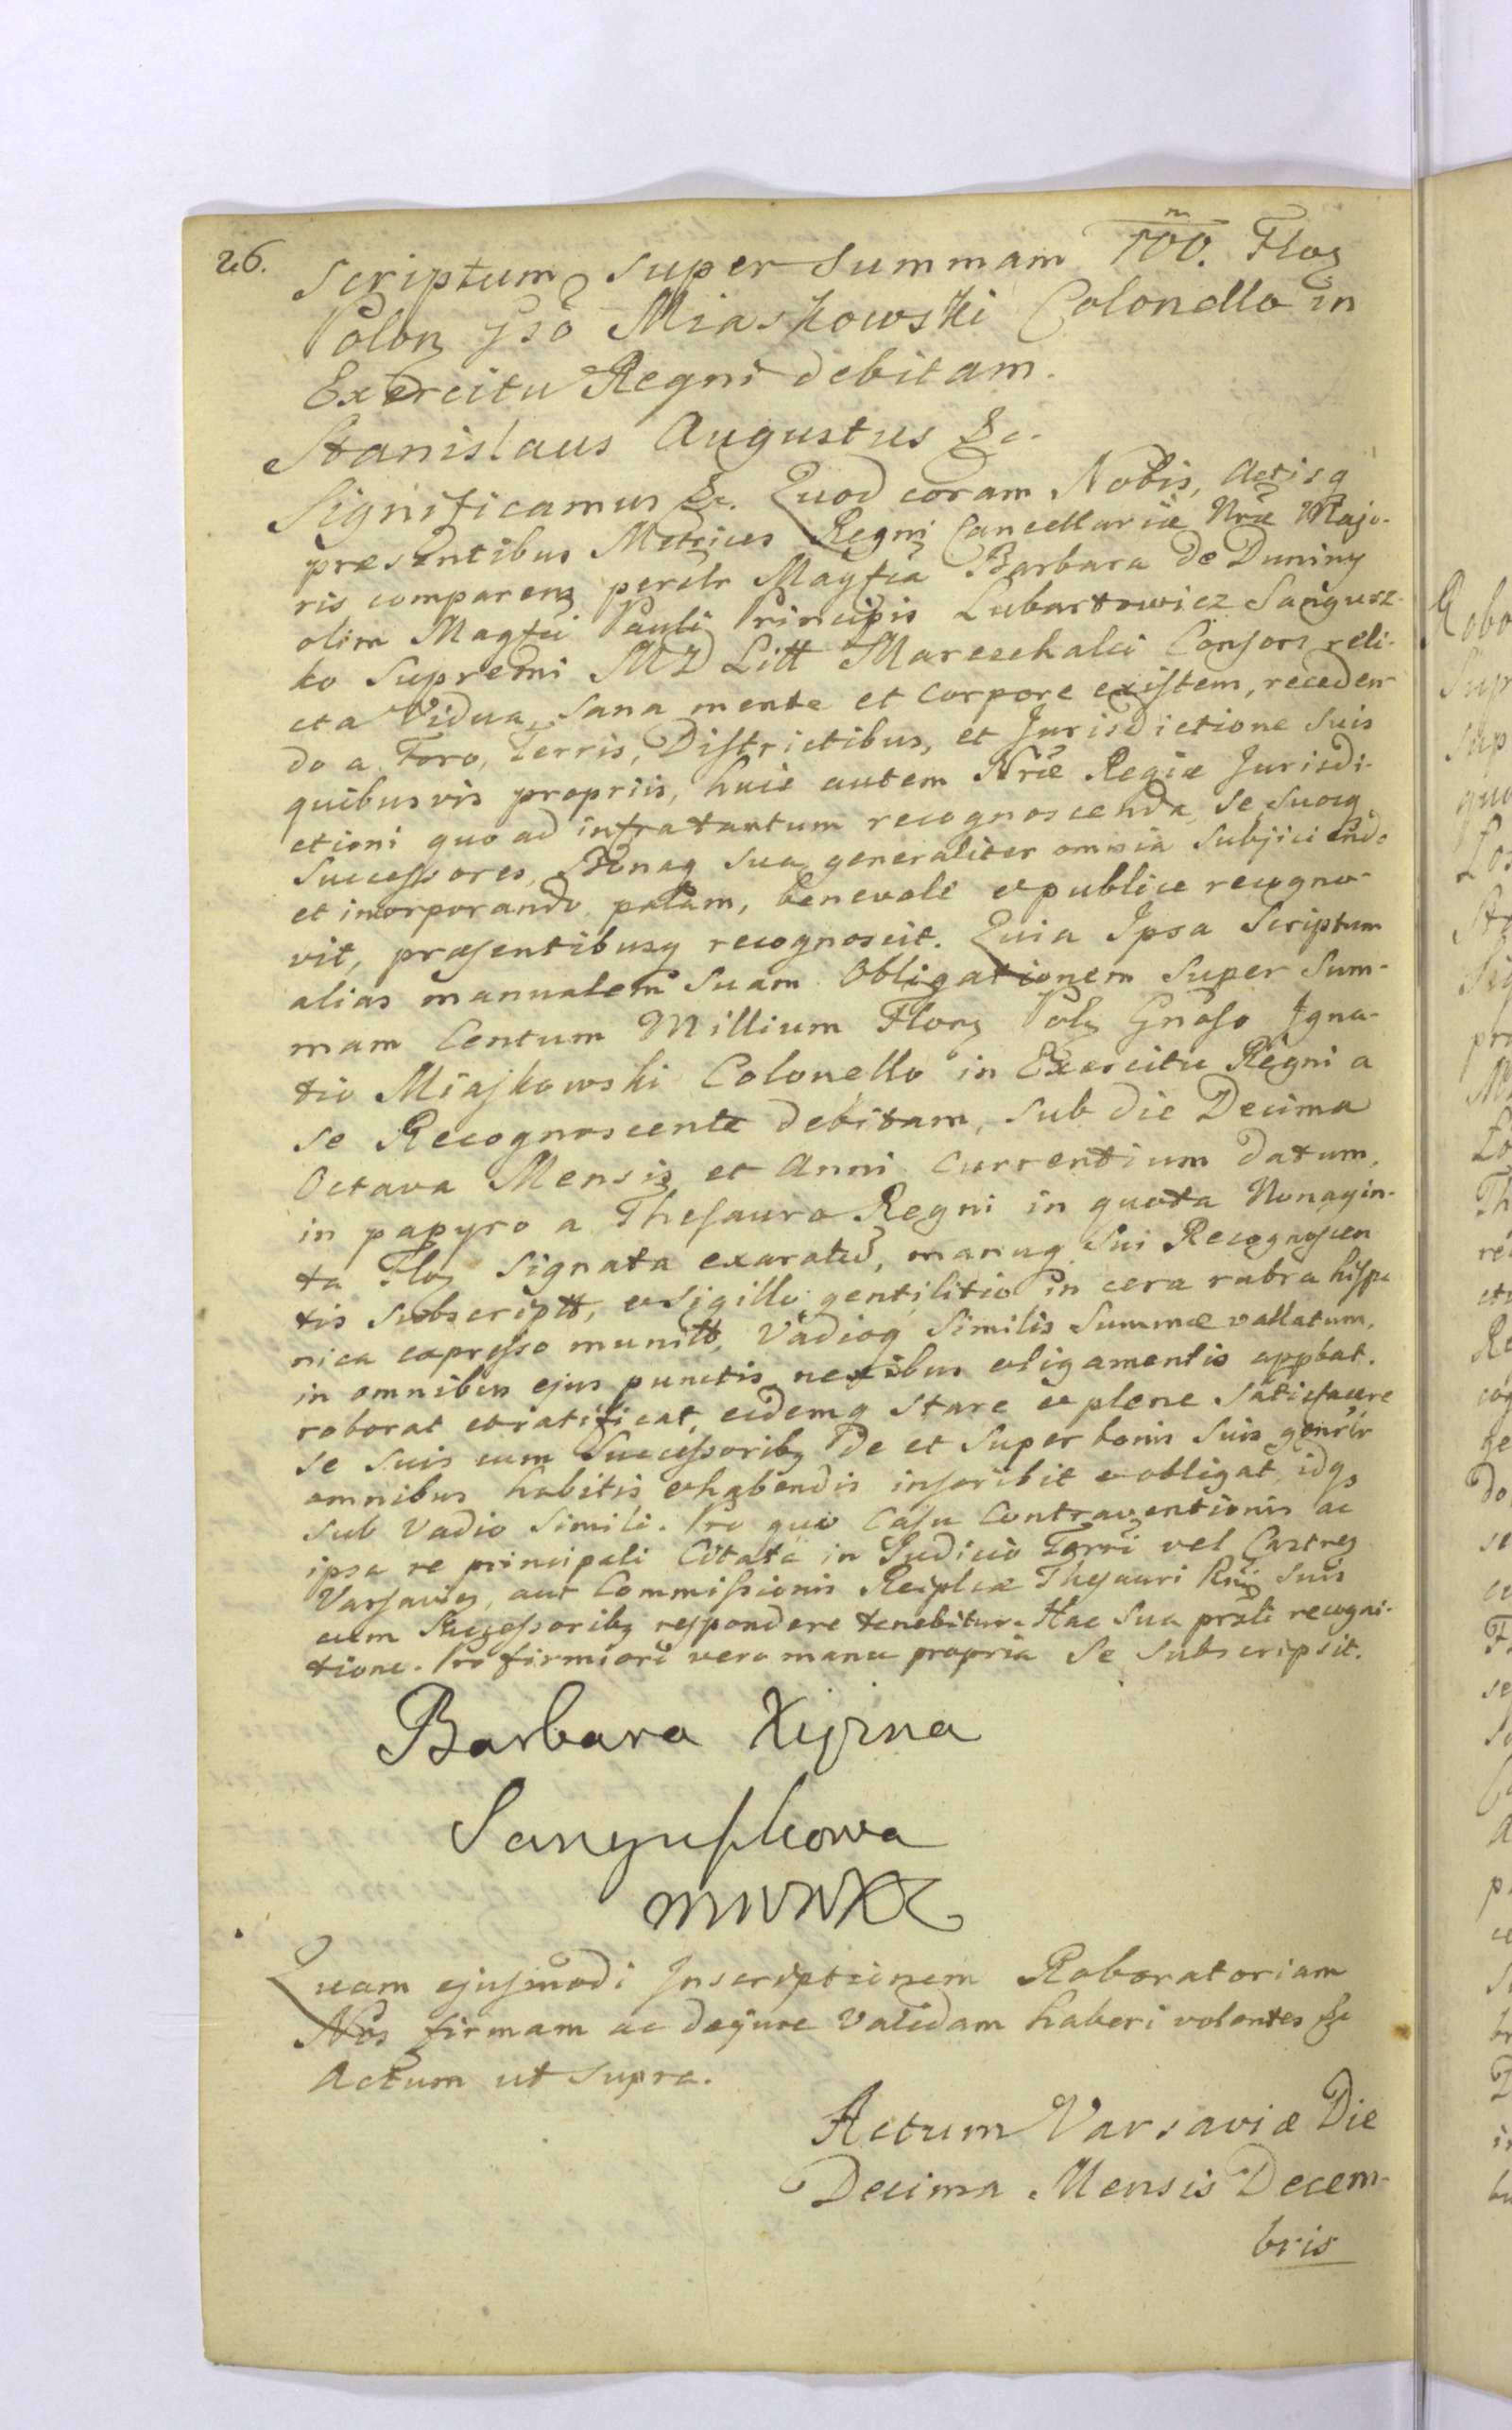 26.
Scriptum super Summam 100. Floꝝ
Polon gso Miaskowski Colonello in
Exercitu Regni debitam.
Stanislaus Augustus &c.
Significamus &c. Quod coram Nobis, Actisq
præsentibus Metrices Regni Cancellariæ Nræ Majo-
ris comparens perslr Magfca Barbara de Duniny
olim Magfci Pauli Principis Lubartowicz Sangusz-
ko Supremi MD Litt Mareschalci Consors reli-
cta Vidua, Sana mente et corpore existem, receden-
do a Foro, Terris, Districtibus, et Jurisdictione Suis
quibusvis propriis, huic autem Nræ Regiæ Jurisdi-
ctioni quo ad infratantum recognoscenda, se, suosq
Successores, Bonaq sua generaliter omnia Subjiciendo
et incorporando palam, benevole et publice recogno-
vit, præsentibusq recognoscit. Quia Ipsa Scriptum
alias manualem Suam Obligationem Super Sum-
mam Centum Millium Flor Pol Gnoso Igna-
tio Miaskowski Colonello in Exercitu Regni a
se Recognoscente debitam, sub die Decima
Octava Mensis et Anni Currentium datum,
in papyro a Thesauro Regni in quota Nonagin-
ta Flo Signata exaratū, manuq Sui Recognoscen
tis subscriptt, et Sigillo gentilitio in cera rubra hispa
nica expresso munitt, Vadioq Similis Summæ vallatum,
in omnibus ejus punctis nexibus et ligamentis appbat.
roborat et ratificat, eidemq stare et plene Satisfacere
se suis cum Successoribq de et Super bonis Suis genrlr
omnibus habitis et habendis inscribit et obligat, idq
sub Vadio Simili. Pro quo Casu Contraventionis ac
ipsa re principali Citata in Judicio Terri vel Castreg
Varsavieg, aut Commissionis Reiplcæ Thesauri Rni Suis
cum Successoribq respondere tenebitur. Hac Sua prñti recogni-
tione. Pro firmiori vero manu propria Se Subscripsit.
Barbara Xiężna
Sanguszkowa
MWWXL
Quam ejusmodi Inscriptionem Roboratoriam
Nos firmam ac dejure Validam haberi volentes &c
Actum ut supra.
Actum Varsaviæ Die
Decima Mensis Decem-
bris